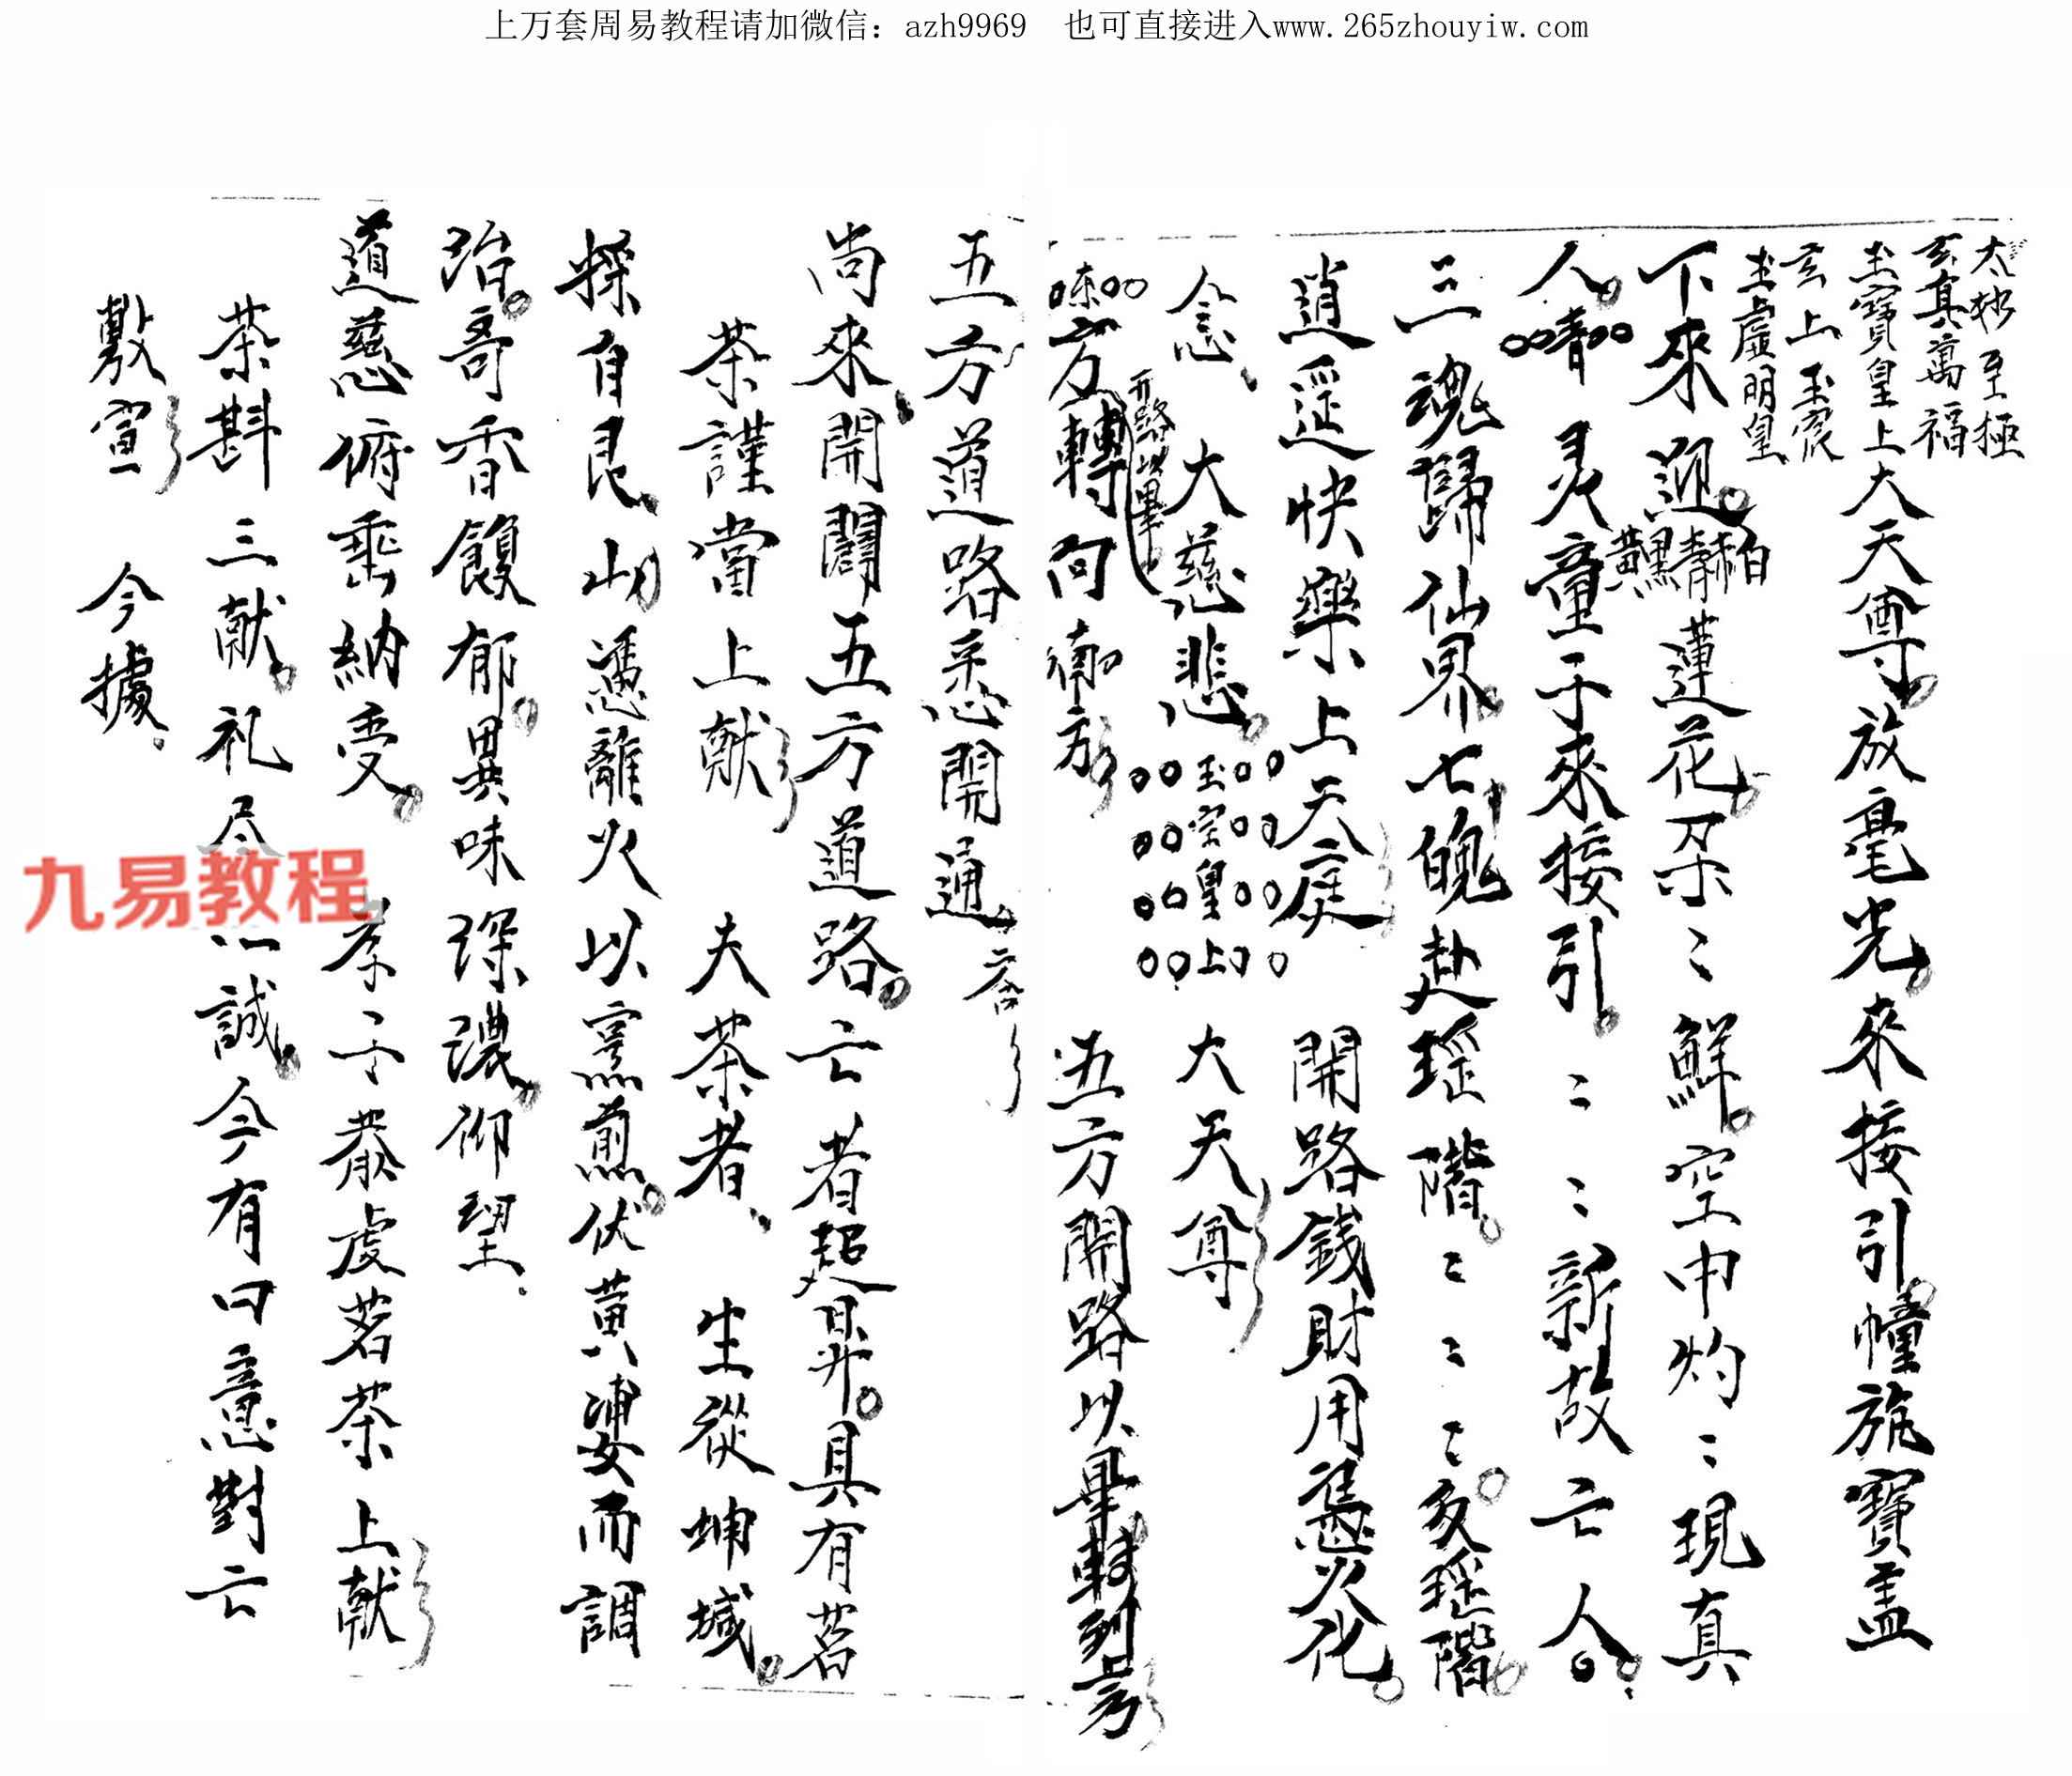 上万套周易教程请加微信：azh9969　也可直接进入www.265zhouyiw.com
太 至極
玄真萬福
寶皇上大天尊放毫光來接引幢旛寶盖
玄上玉宸
虛明皇
下來迎
白赤青黑黃
蓮花朶〻鮮空中灼〻現真
人 灵童子來接引〻〻新故亡人
三魂歸仙界七魄赴瑶階〻〻〻 瑶階
逍遥快樂上天庭 開路錢財用憑火化
念 大慈悲 玉宗皇上 大天尊
开路以畢
東方轉向南方 五方開路以畢
五方道路悉開通
尚來開闢五方道路亡者超昇具有茗
茶謹當上献 夫茶者 生從坤域
採自艮山 憑離火以 煎伏黄婆而調
治哥香馥郁異味深濃仰望
道慈俯垂納受 孝子恭虔茗茶上献
茶斟三献礼尽 誠今有曰意對亡
敷宣 今據
九易教程